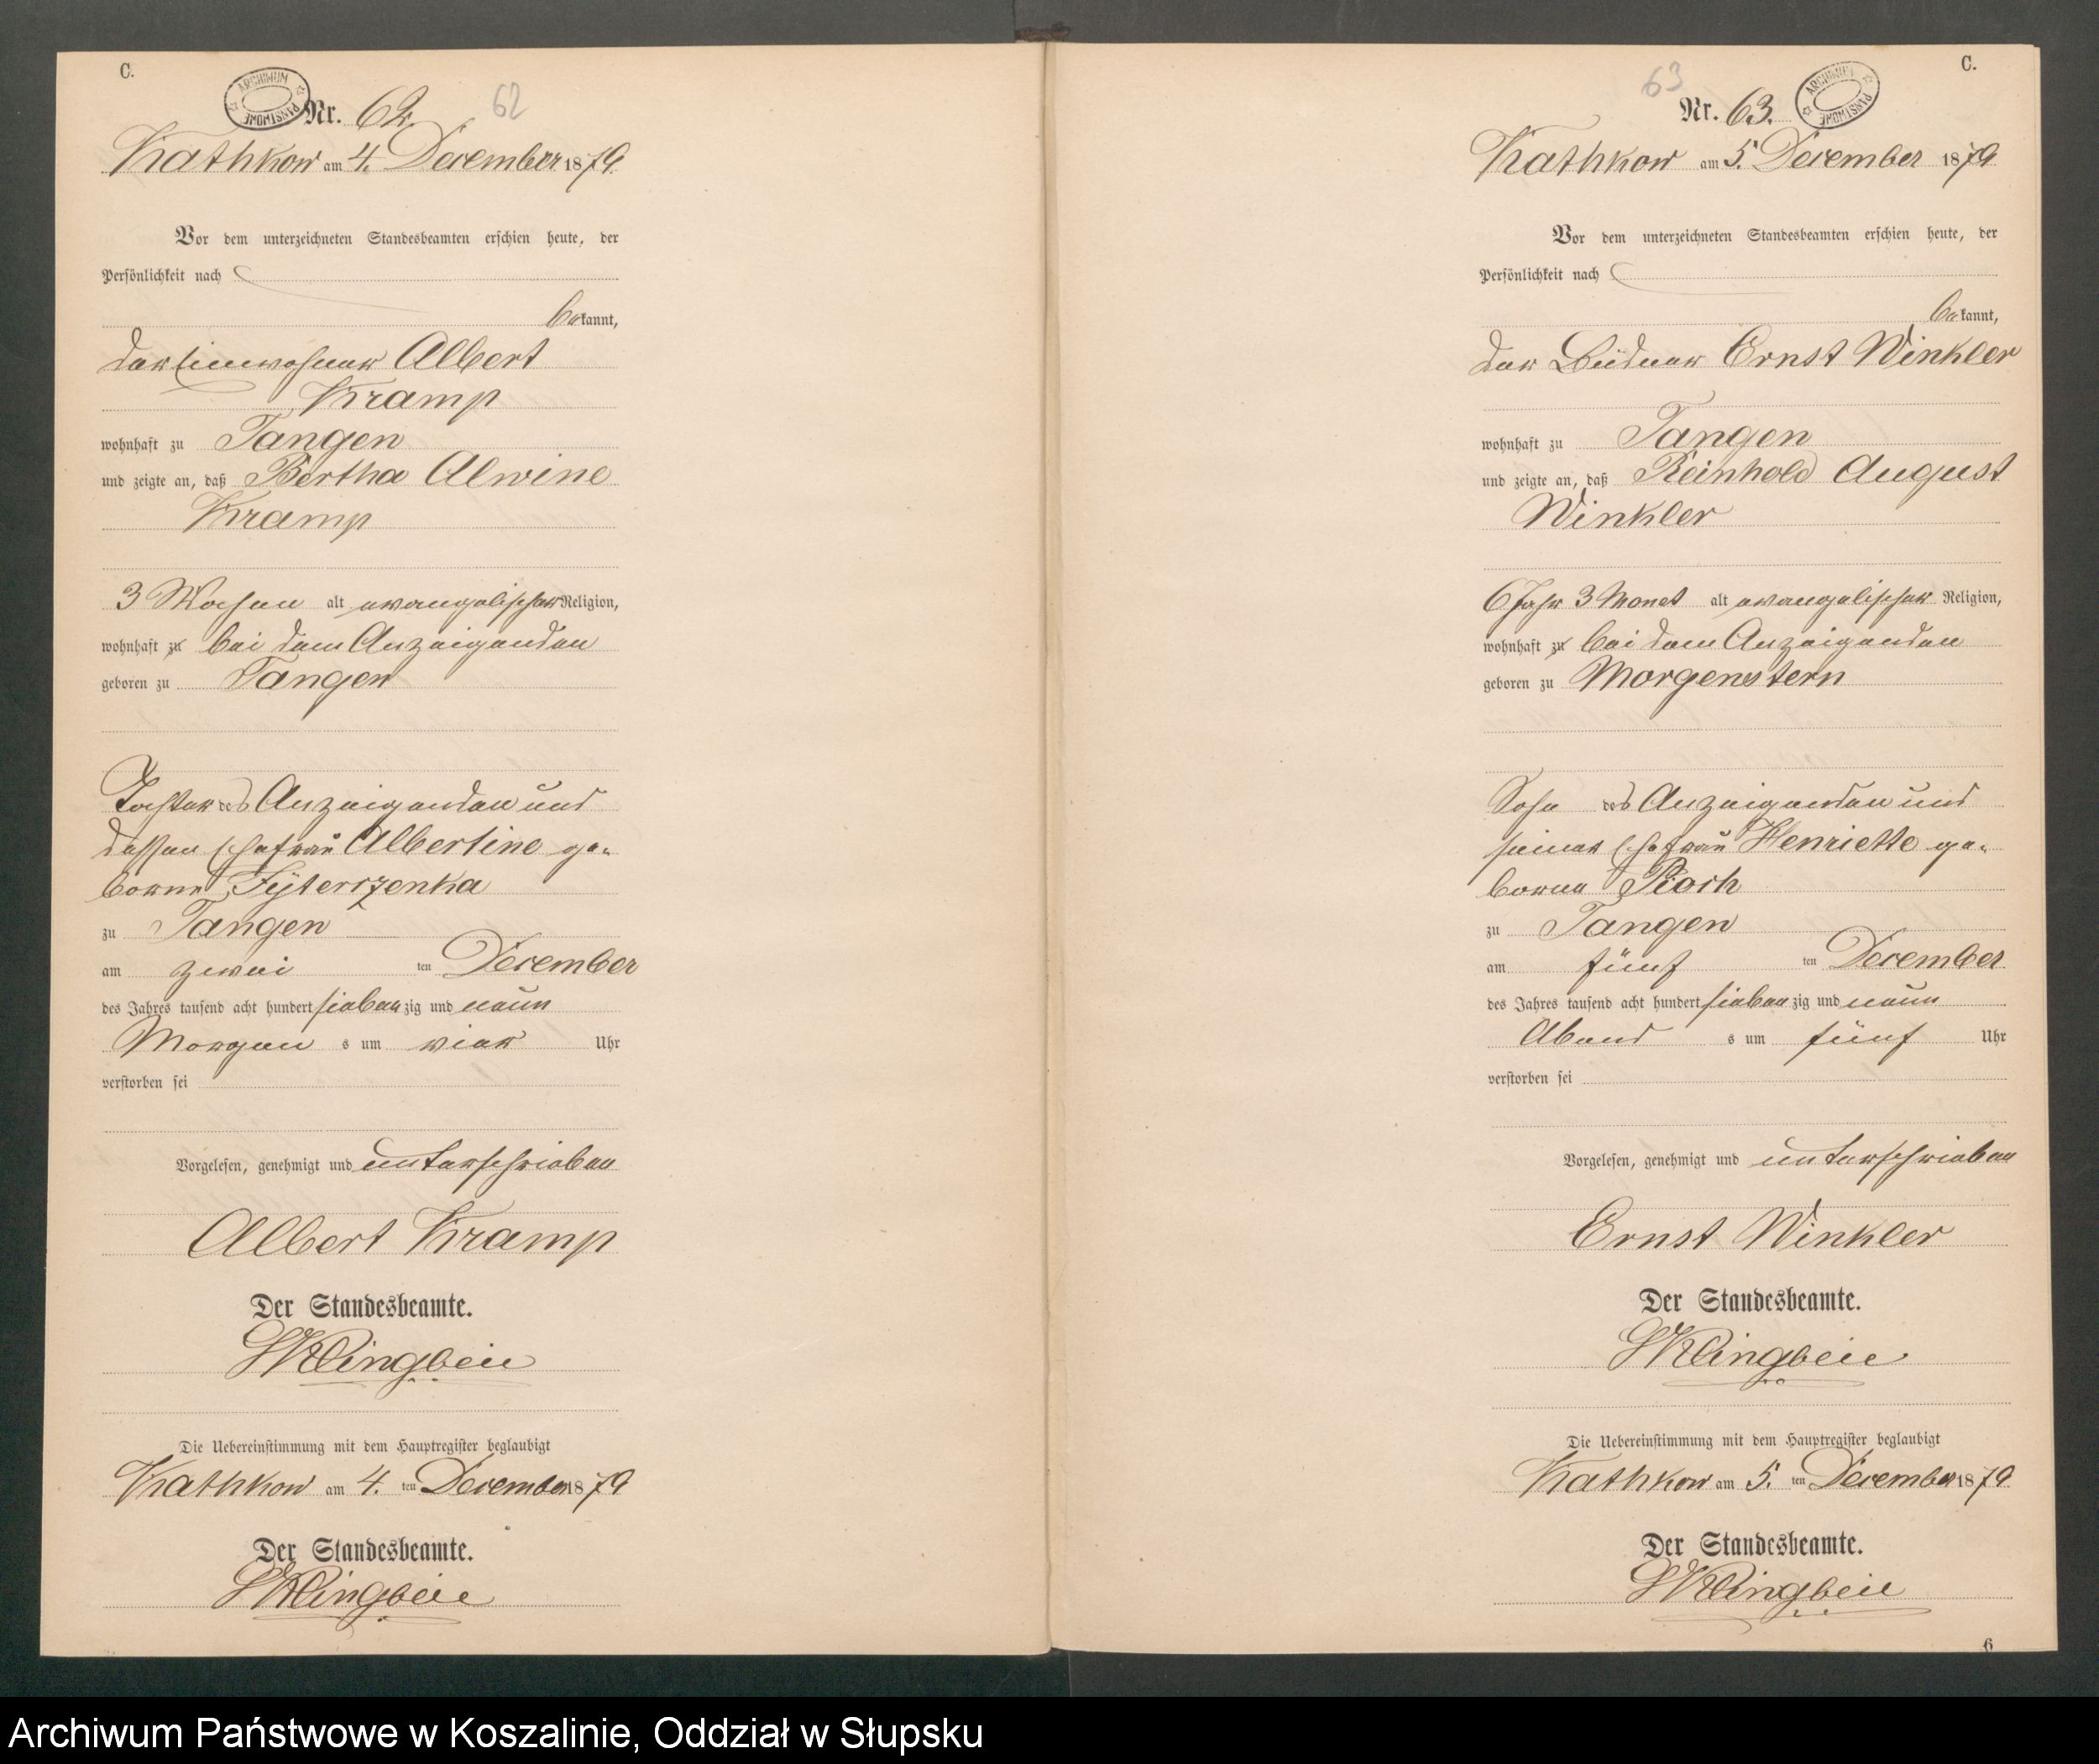 C.
ARCHIWUM PAŃSTWOWE
Nr. 62.
62
Kathkow am 4. December 1879.
Vor dem unterzeichneten Standesbeamten erschien heute, der
Persönlichkeit nach
bekannt,
der Einwohner Albert
Kramp
wohnhaft zu Tangen
und zeigte an, daß Bertha Alwine
Kramp
3 Wochen alt evangelischer Religion,
wohnhaft zu bei dem Anzeigenden
geboren zu Tangen
Tochter des Anzeigenden und
dessen Ehefrau Albertine ge-
borne
zu Tangen
am zwei ten December
des Jahres tausend acht hundert siebenzig und neun
Morgen s um vier Uhr
verstorben sei
Vorgelesen, genehmigt und unterschrieben
Albert Kramp
Der Standesbeamte.
Klingbeil
Die Uebereinstimmung mit dem Hauptregister beglaubigt
Kathkow am 4. ten December 1879
Der Standesbeamte.
Klingbeil
C.
63
ARCHIWUM PAŃSTWOWE
Nr. 63.
Kathkow am 5. December 1879
Vor dem unterzeichneten Standesbeamten erschien heute, der
Persönlichkeit nach
bekannt,
der Büdner Ernst Winkler
wohnhaft zu Tangen
und zeigte an, daß Reinhold August
Winkler
6 Jahr 3 Monat alt evangelischer Religion,
wohnhaft zu bei dem Anzeigenden
geboren zu Morgenstern
Sohn des Anzeigenden und
seiner Ehefrau Henriette ge-
borne Pioch
zu Tangen
am fünf ten December
des Jahres tausend acht hundert siebenzig und neun
Abend s um fünf Uhr
verstorben sei
Vorgelesen, genehmigt und unterschrieben
Ernst Winkler
Der Standesbeamte.
Klingbeil
Die Uebereinstimmung mit dem Hauptregister beglaubigt
Kathkow am 5. ten December 1879
Der Standesbeamte.
Klingbeil
6
Archiwum Państwowe w Koszalinie, Oddział w Słupsku